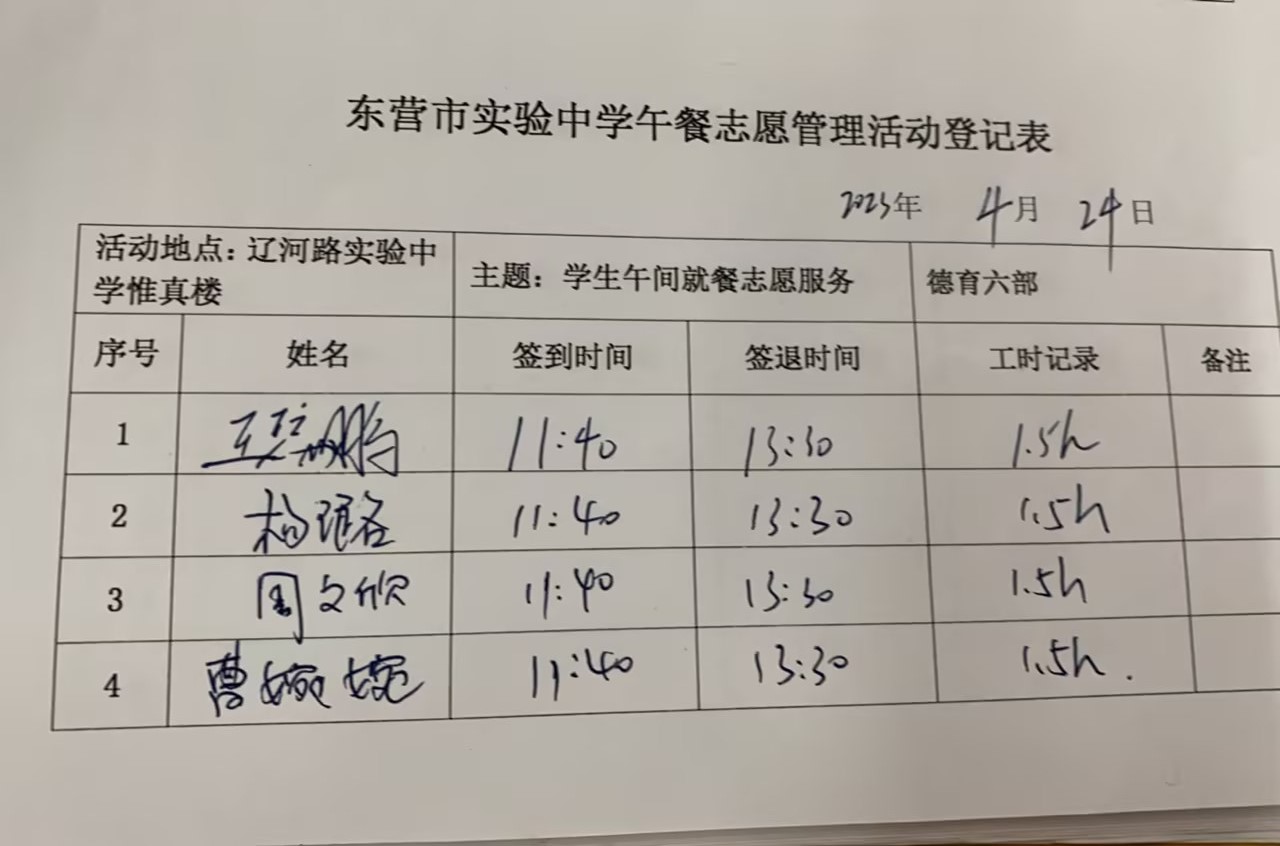 东营市实验中学午餐志愿管理活动登记表
2023年 4月 24日
活动地点：辽河路实验中学惟真楼 主题：学生午间就餐志愿服务 德育六部
序号 姓名 签到时间 签退时间 工时记录 备注
1 11:40 13:30 1.5h
2 杨 11:40 13:30 1.5h
3 周文欣 11:40 13:30 1.5h
4 曹婉婉 11:40 13:30 1.5h.